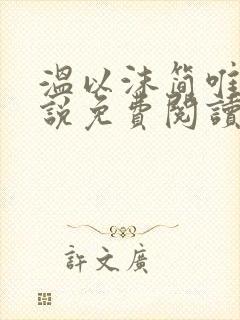 溫以沫簡唯
說免費閱讀
許文廣